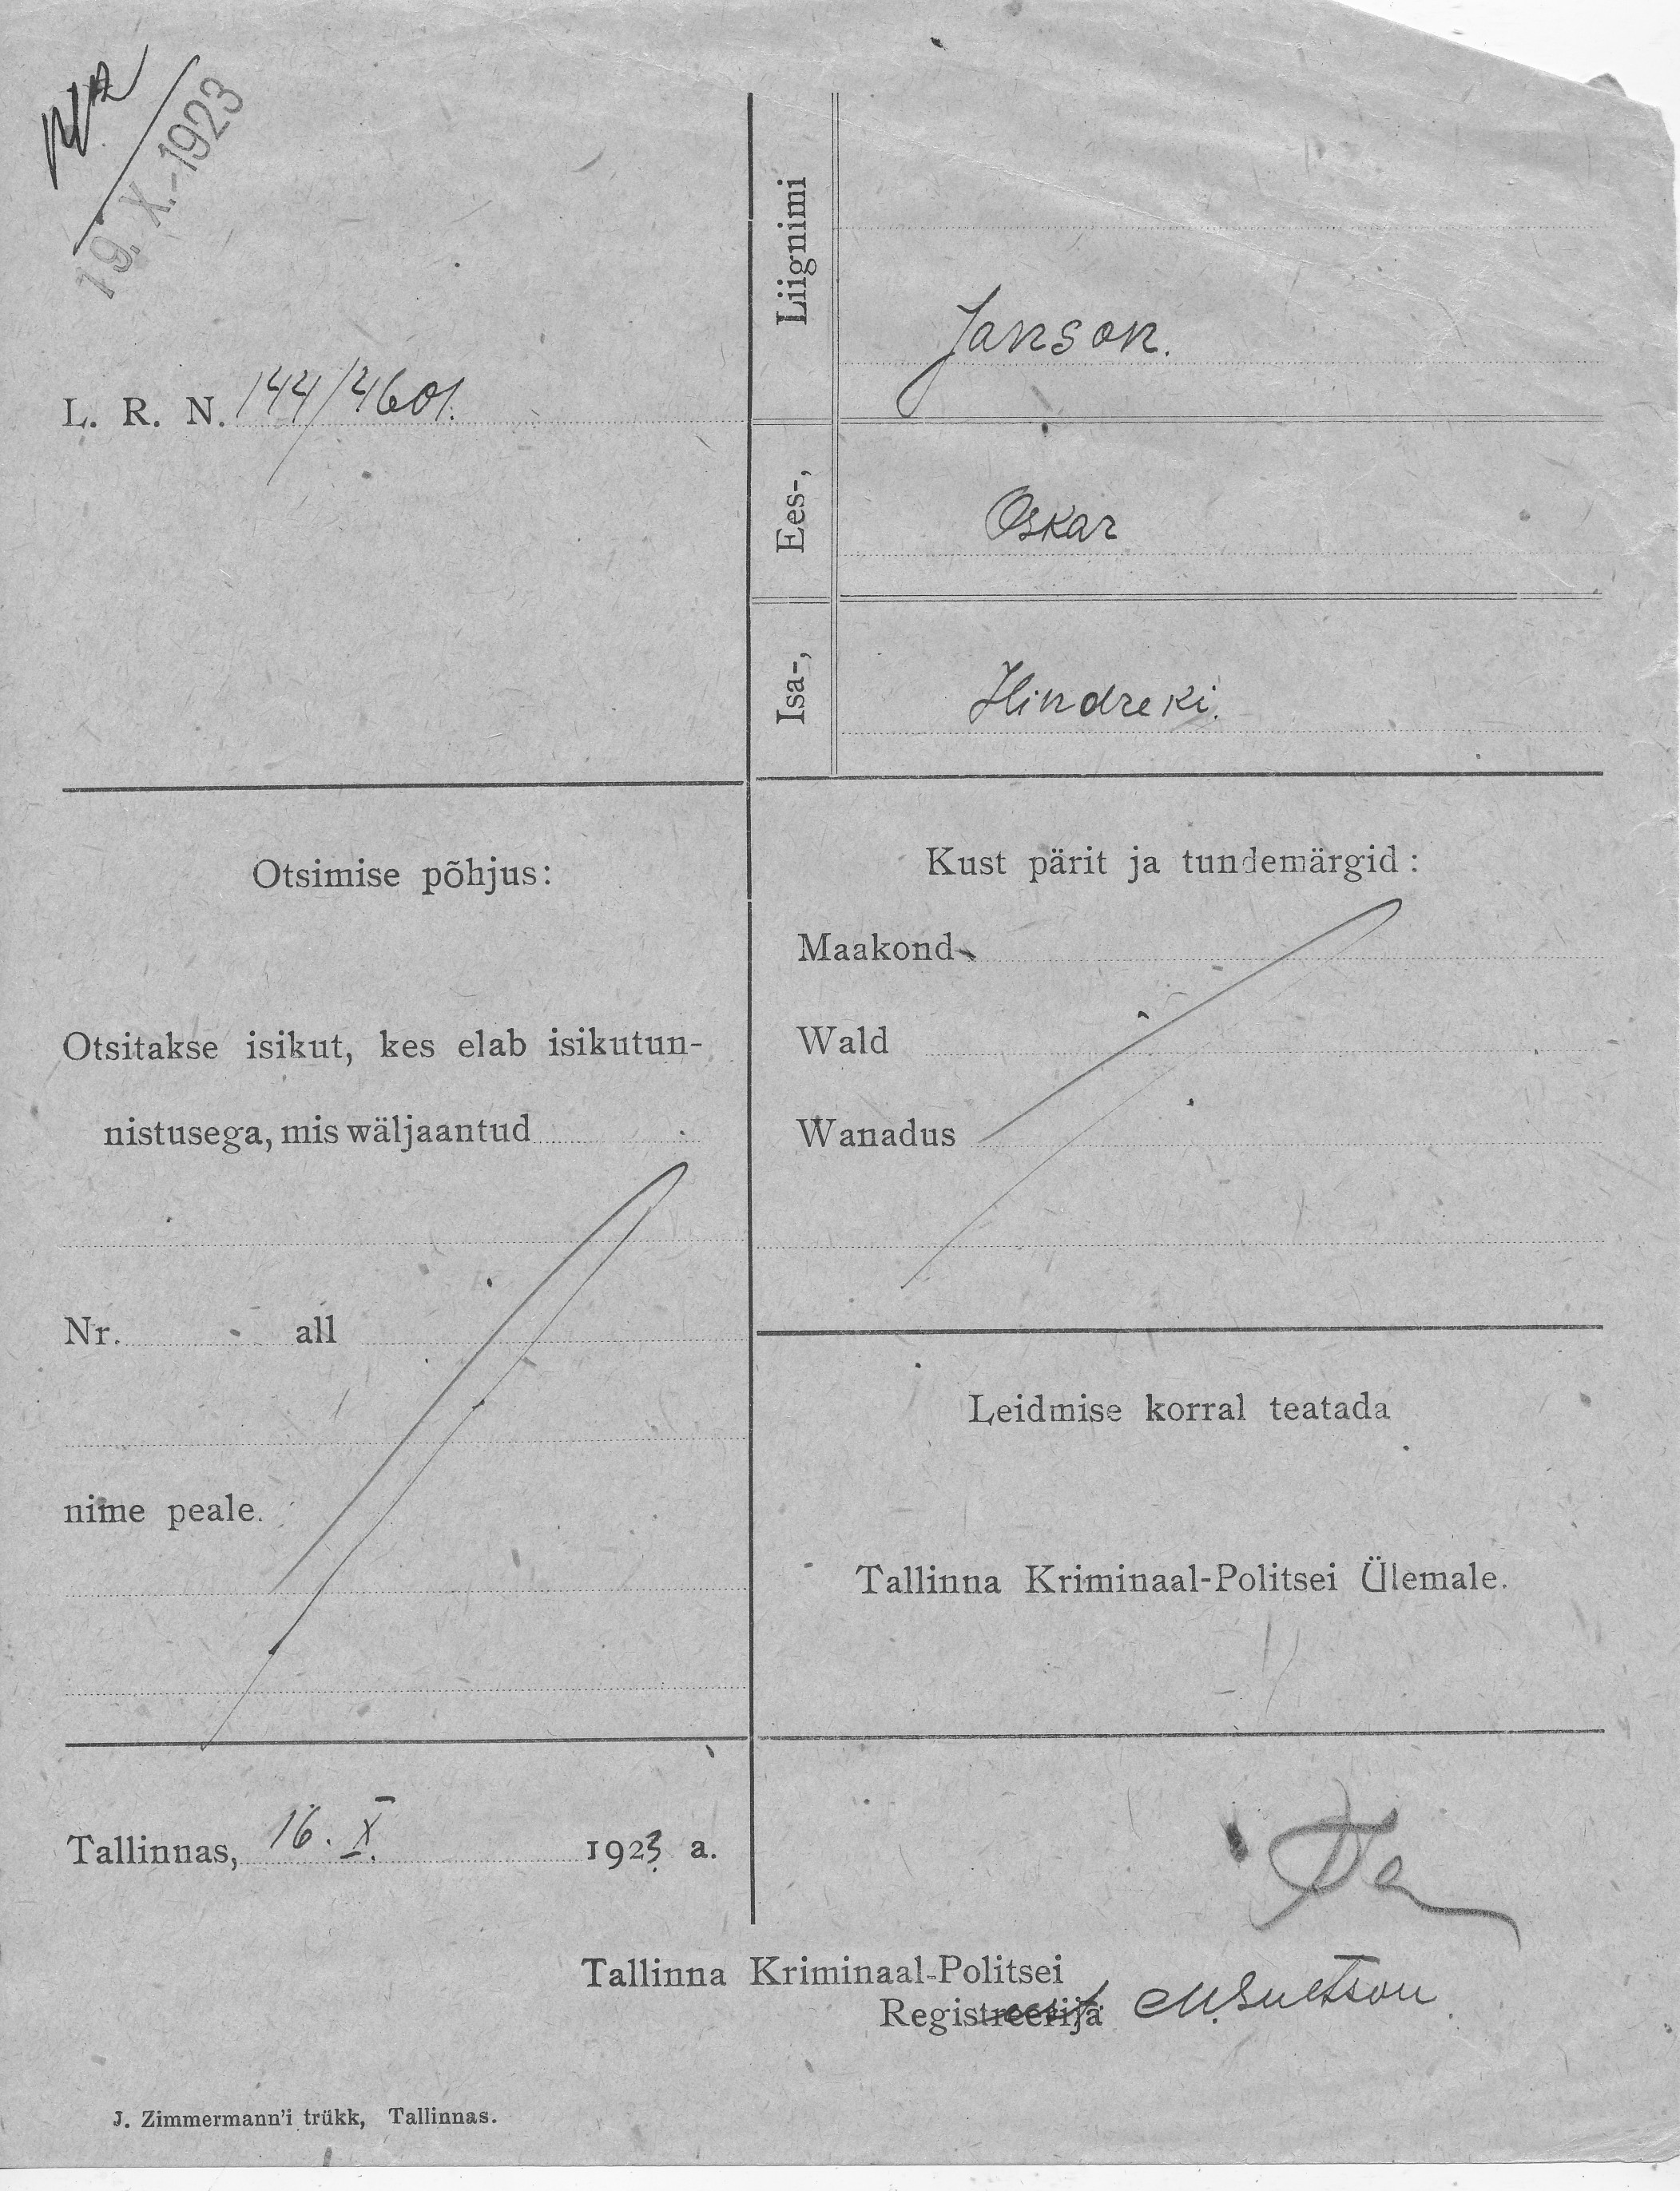 19. X.-1923
L. R. N. 144/4601.
Liignimi
Janson.
Ees-,
Oskar
Isa-,
Hindreki.
Otsimise põhjus:
Otsitakse isikut, kes elab isikutun-
nistusega, mis wäljaantud
Nr. all
nime peale.
Kust pärit ja tundemärgid:
Maakond
Wald
Wanadus
Leidmise korral teatada
Tallinna Kriminaal-Politsei Ülemale.
Tallinnas, 16. X. 1923 a.
Tallinna Kriminaal-Politsei
Registreerija
J. Zimmermann'i trükk, Tallinnas.